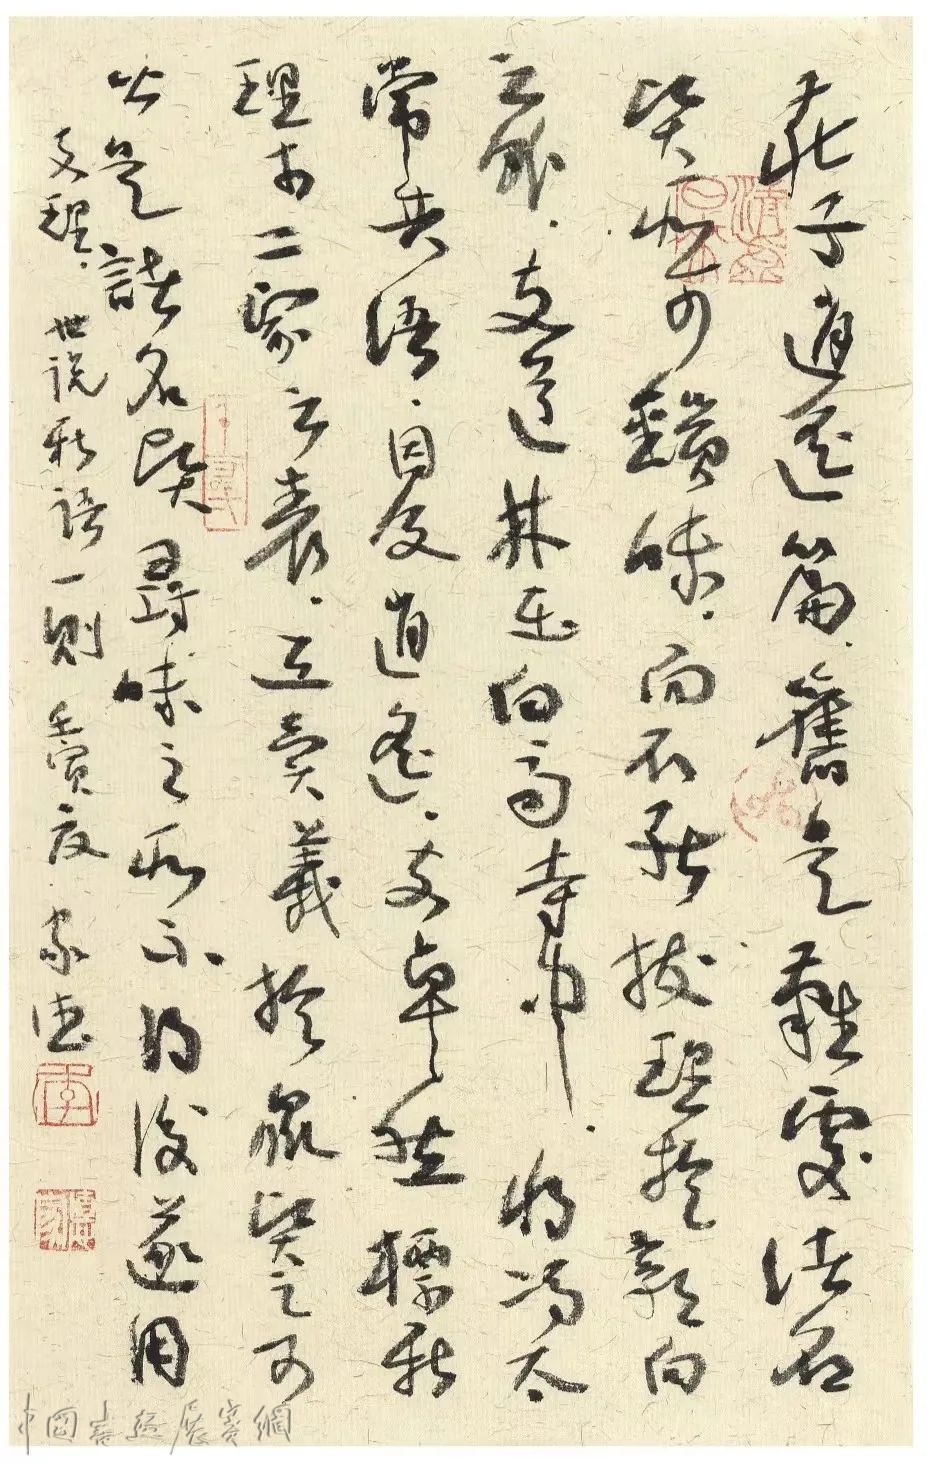 莊子逍遙篇舊是難處諸名
賢所可鑽味而不能拔理於郭向
之外支道林在白馬寺中將馮太
常共語因及逍遙支卓然標新
理於二家之表立異義於眾賢之外
皆是諸名賢尋味之所不得後遂用
支理世说新語一則壬寅夏家德
中国書法展賽網